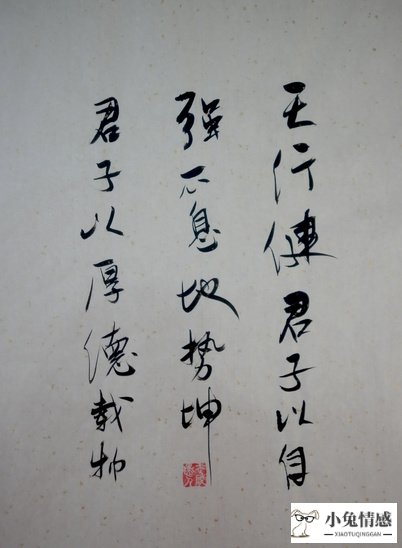 天行健君子以自
强不息地势坤
君子以厚德载物
小兔情感
XIAOTUQINGGAN